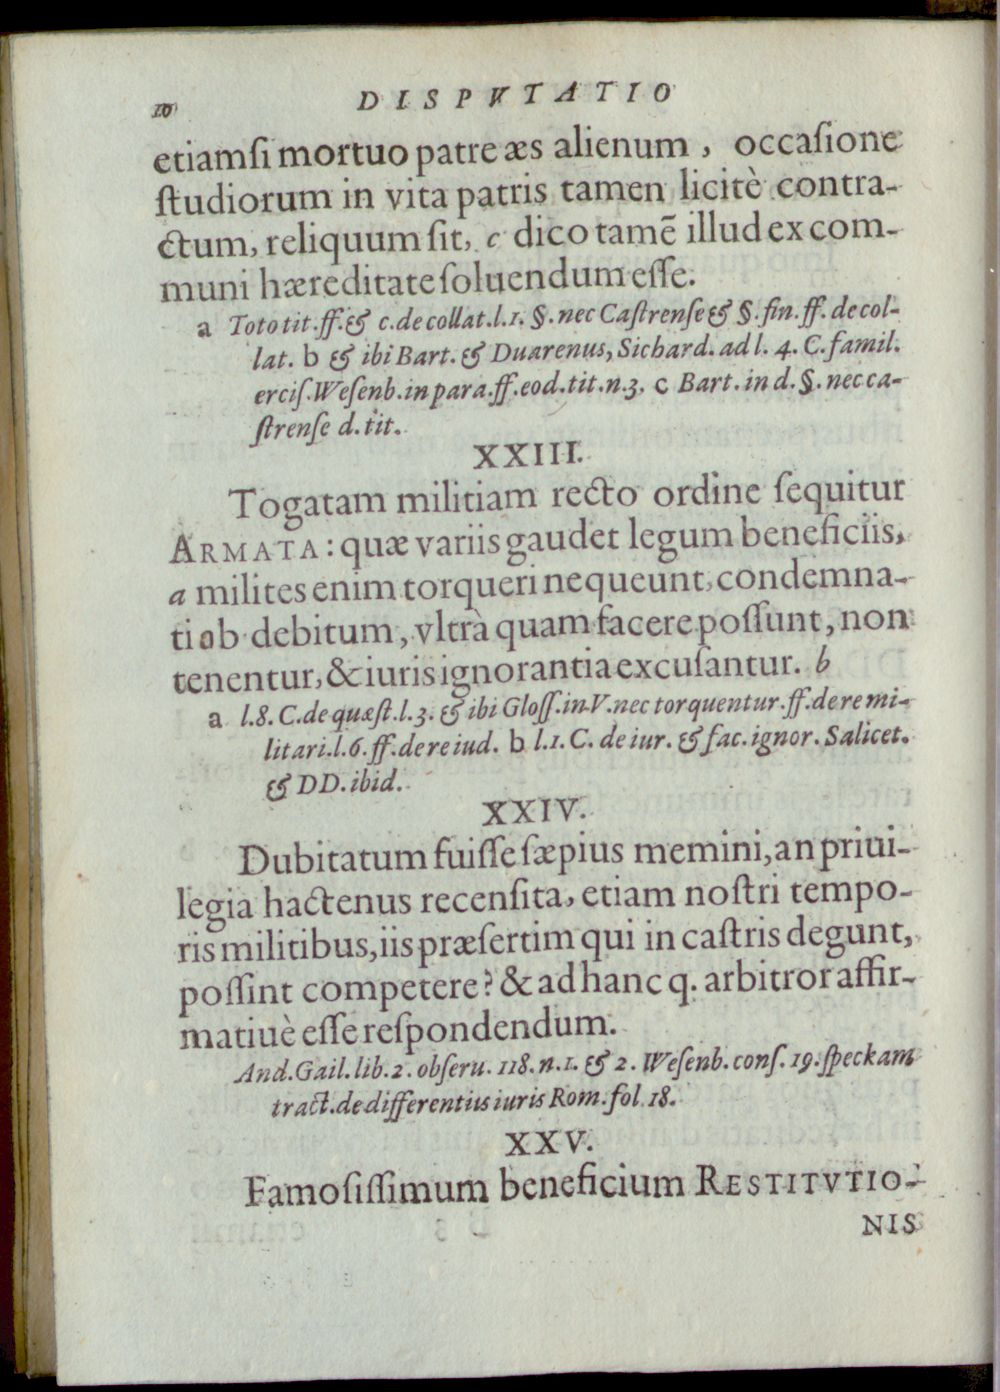 10 DISPVTATIO
etiamſi mortuo patre æs alienum, occaſione
ſtudiorum in vita patris tamen licitè contra-
ctum, reliquum ſit, c dico tamẽ illud ex com-
muni hæreditate ſoluendum eſſe.
a Toto tit. ff. & c. de collat. l. 1. §. nec Caſtrenſe & §. fin. ff. de col-
lat. b & ibi Bart. & Duarenus, Sichard. ad l. 4. C. famil.
erciſ. Weſenb. in para. ff. eod. tit. n. 3. c Bart. in d. §. nec ca-
ſtrenſe d. tit.
XXIII.
Togatam militiam recto ordine ſequitur
ARMATA: quæ variis gaudet legum beneficiis,
a milites enim torqueri nequeunt, condemna-
ti ob debitum, vltrà quam facere poſſunt, non
tenentur, & iuris ignorantia excuſantur. b
a l. 8. C. de quæſt. l. 3. & ibi Gloſſ. in V. nec torquentur. ff. de re mi-
litari. l. 6. ff. de re iud. b l. 1. C. de iur. & fac. ignor. Salicet.
& DD. ibid.
XXIV.
Dubitatum fuiſſe ſæpius memini, an priui-
legia hactenus recenſita, etiam noſtri tempo-
ris militibus, iis præſertim qui in caſtris degunt,
poſſint competere? & ad hanc q. arbitror affir-
matiuè eſſe reſpondendum.
And. Gail. lib. 2. obſeru. 118. n. 1. & 2. Weſenb. conſ. 19. ſpeckam
tract. de differentiis iuris Rom. fol. 18.
XXV.
Famoſiſſimum beneficium RESTITVTIO-
NIS